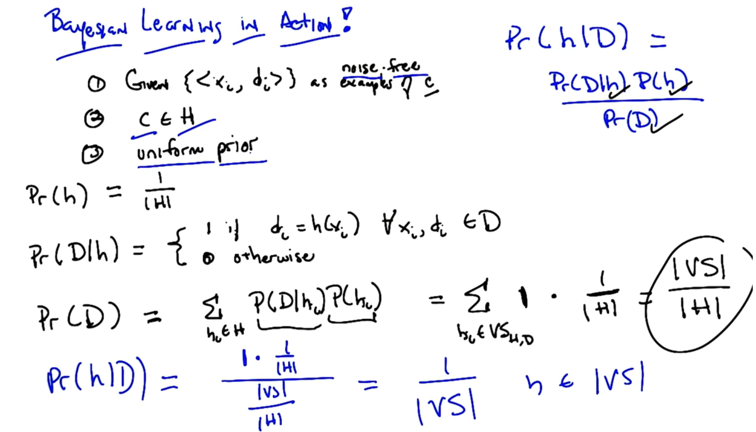 Bayesian Learning in Action!
① Given {<xᵢ, dᵢ>} as noise-free examples of c
② c ∈ H
③ uniform prior
Pr(h|D) = Pr(D|h) P(h) / Pr(D)
Pr(h) = 1/|H|
Pr(D|h) = { 1 if dᵢ = h(xᵢ) ∀xᵢ, dᵢ ∈ D
0 otherwise
Pr(D) = Σ_{hᵢ∈H} P(D|hᵢ) P(hᵢ) = Σ_{hᵢ∈VS_{H,D}} 1 · 1/|H| = |VS|/|H|
Pr(h|D) = (1 · 1/|H|) / (|VS|/|H|) = 1/|VS| h ∈ |VS|